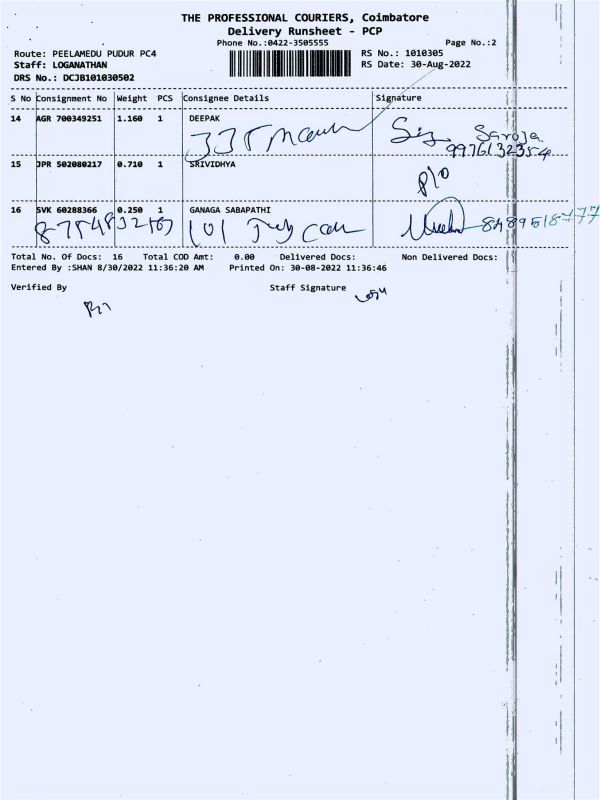 THE PROFESSIONAL COURIERS, Coimbatore
Delivery Runsheet - PCP
Phone No.:0422-3505555 Page No.:2
Route: PEELAMEDU PUDUR PC4 RS No.: 1010305
Staff: LOGANATHAN RS Date: 30-Aug-2022
DRS No.: DCJB101030502
S No Consignment No Weight PCS Consignee Details Signature
14 AGR 700349251 1.160 1 DEEPAK
335 Saroja
9976132354
15 JPR 502080217 0.710 1 SRIVIDHYA
P/O
16 SVK 60288366 0.250 1 GANAGA SABAPATHI
101 8489518777
Total No. Of Docs: 16 Total COD Amt: 0.00 Delivered Docs: Non Delivered Docs:
Entered By :SHAN 8/30/2022 11:36:20 AM Printed On: 30-08-2022 11:36:46
Verified By Staff Signature